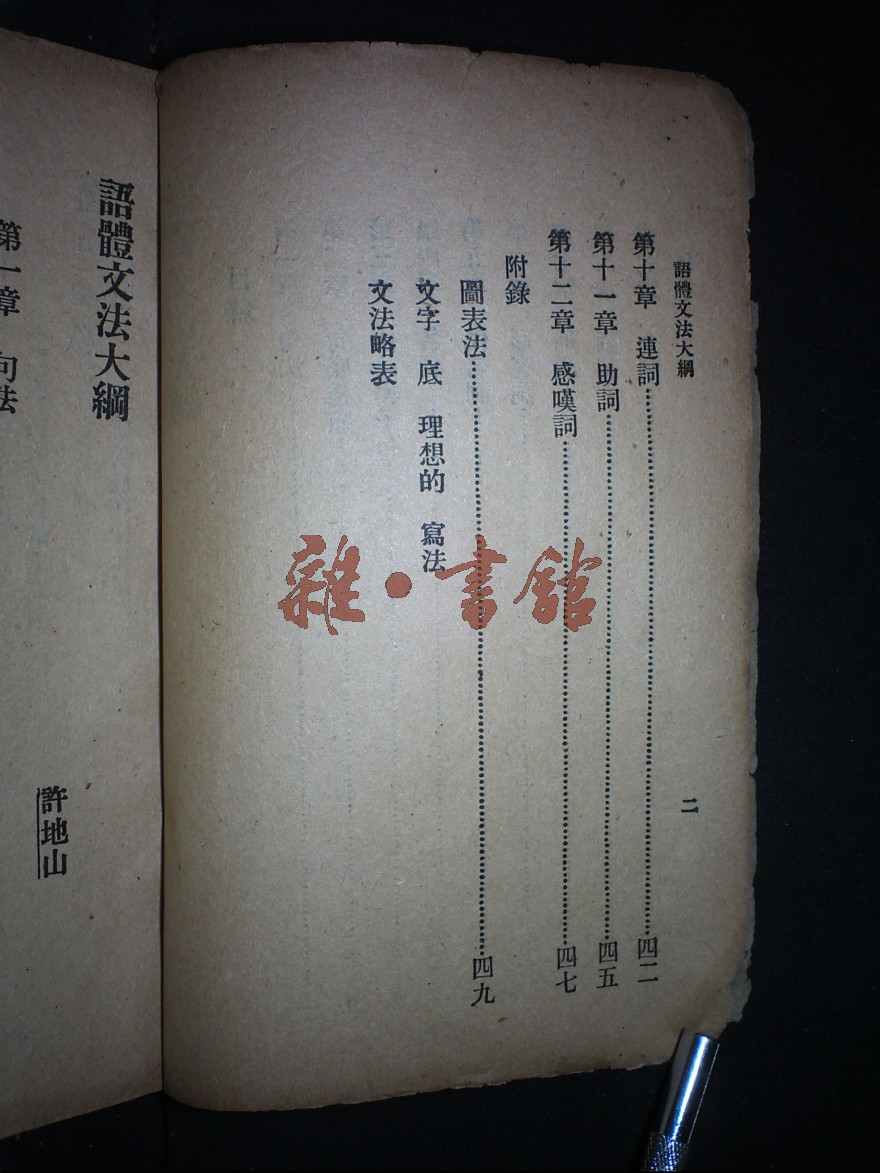 語體文法大綱
二
第十章 連詞……四二
第十一章 助詞……四五
第十二章 感嘆詞……四七
附錄
圖表法……四九
文字 底 理想的 寫法
文法略表
語體文法大綱
許地山
第一章 句法
雜·書館